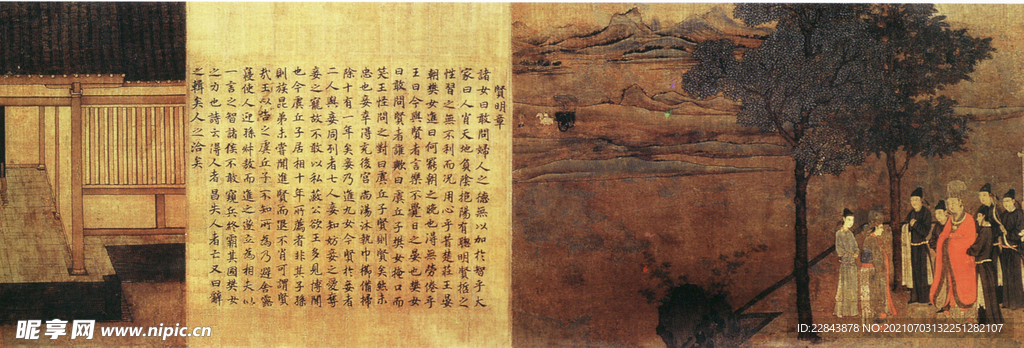 賢明章
諸女曰敢問婦人之德無以加於智乎大
家曰人肖天地負陰抱陽有聰明賢哲之
性習之無不利而況用心乎昔楚莊王晏
朝樊女進曰何罷朝之晚也得無勞倦乎
王曰今與賢者言樂不覺日之晏也樊女
曰敢問賢者誰歟曰虞丘子樊女掩口而
笑王怪問之對曰虞丘子賢則賢矣然未
忠也妾幸得充後宮尚湯沐執巾櫛備掃
除十有一年矣妾乃進九女今賢於妾者
二人與妾同列者七人妾知妨妾之愛奪
妾之寵故不敢以私蔽公欲王多見博聞
也今虞丘子居相十年所薦者非其子孫
則族昆弟未嘗聞進賢而退不肖可謂賢
哉王以告之虞丘子不知所為乃避舍露
寢使人迎孫叔敖而進之遂立為相夫以
一言之智諸侯不敢窺兵終霸其國樊女
之力也詩云得人者昌失人者亡又曰辭
之輯矣人之洽矣
昵享网 www.nipic.cn
ID:22843878 NO:20210703132251282107